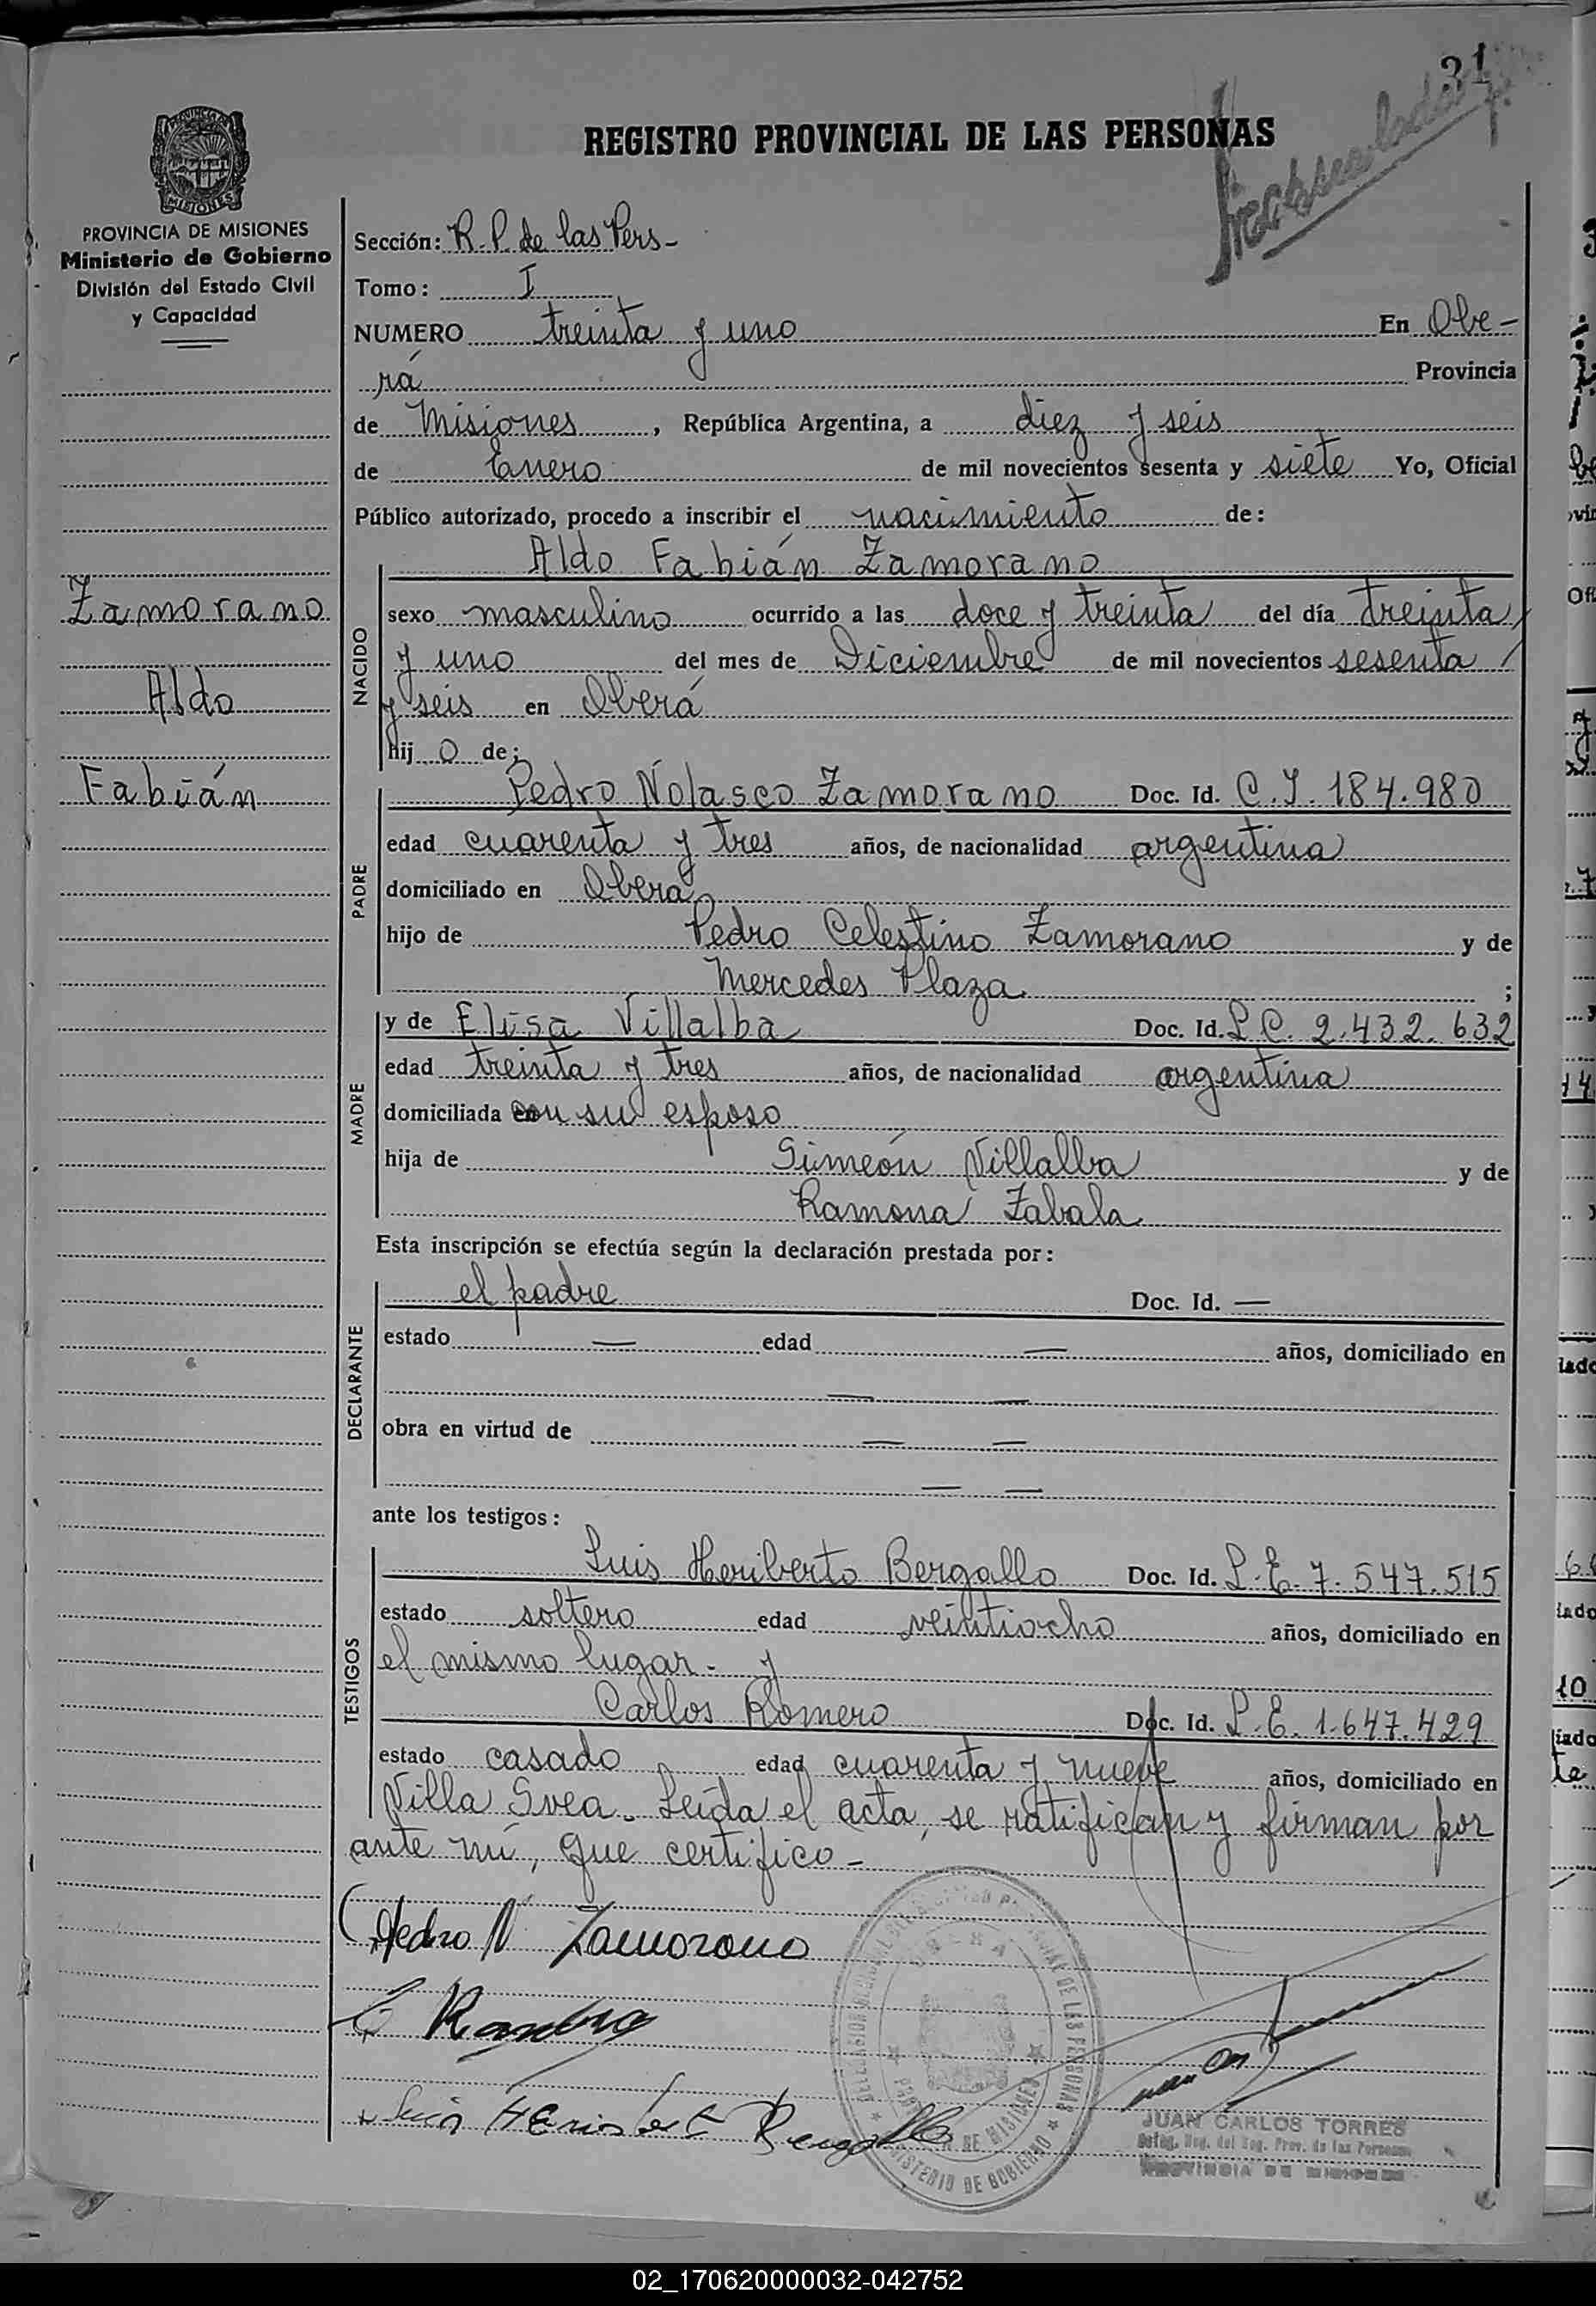 31
REGISTRO PROVINCIAL DE LAS PERSONAS
PROVINCIA DE MISIONES
PROVINCIA DE MISIONES
Ministerio de Gobierno
División del Estado Civil
y Capacidad
Zamorano
Aldo
Fabián
Sección: R. P. de las Pers-
Tomo: I
NUMERO treinta y uno En Obe-
rá Provincia
de Misiones, República Argentina, a diez y seis
de Enero de mil novecientos sesenta y siete Yo, Oficial
Público autorizado, procedo a inscribir el nacimiento de:
NACIDO
Aldo Fabián Zamorano
sexo masculino ocurrido a las doce y treinta del día treinta
y uno del mes de Diciembre de mil novecientos sesenta
y seis en Oberá
hijo de;
PADRE
Pedro Nolasco Zamorano Doc. Id. C. I. 184.980
edad cuarenta y tres años, de nacionalidad argentina
domiciliado en Oberá
hijo de Pedro Celestino Zamorano y de
Mercedes Plaza ;
MADRE
y de Elisa Villalba Doc. Id. L. C. 2.432.632
edad treinta y tres años, de nacionalidad argentina
domiciliada con su esposo
hija de Simeón Villalba y de
Ramona Zabala
Esta inscripción se efectúa según la declaración prestada por:
DECLARANTE
el padre Doc. Id. —
estado — edad — años, domiciliado en
— —
obra en virtud de — —
— —
ante los testigos:
TESTIGOS
Luis Heriberto Bergallo Doc. Id. L. E. 7.547.515
estado soltero edad veintiocho años, domiciliado en
el mismo lugar- y
Carlos Romero Doc. Id. L. E. 1.647.429
estado casado edad cuarenta y nueve años, domiciliado en
Villa Svea. Leída el acta, se ratifican y firman por
ante mí, que certifico-
Pedro N Zamorano
Luis Heriberto Bergallo
OBERA
MINISTERIO DE GOBIERNO
JUAN CARLOS TORRES
PROVINCIA DE MISIONES
02_170620000032-042752